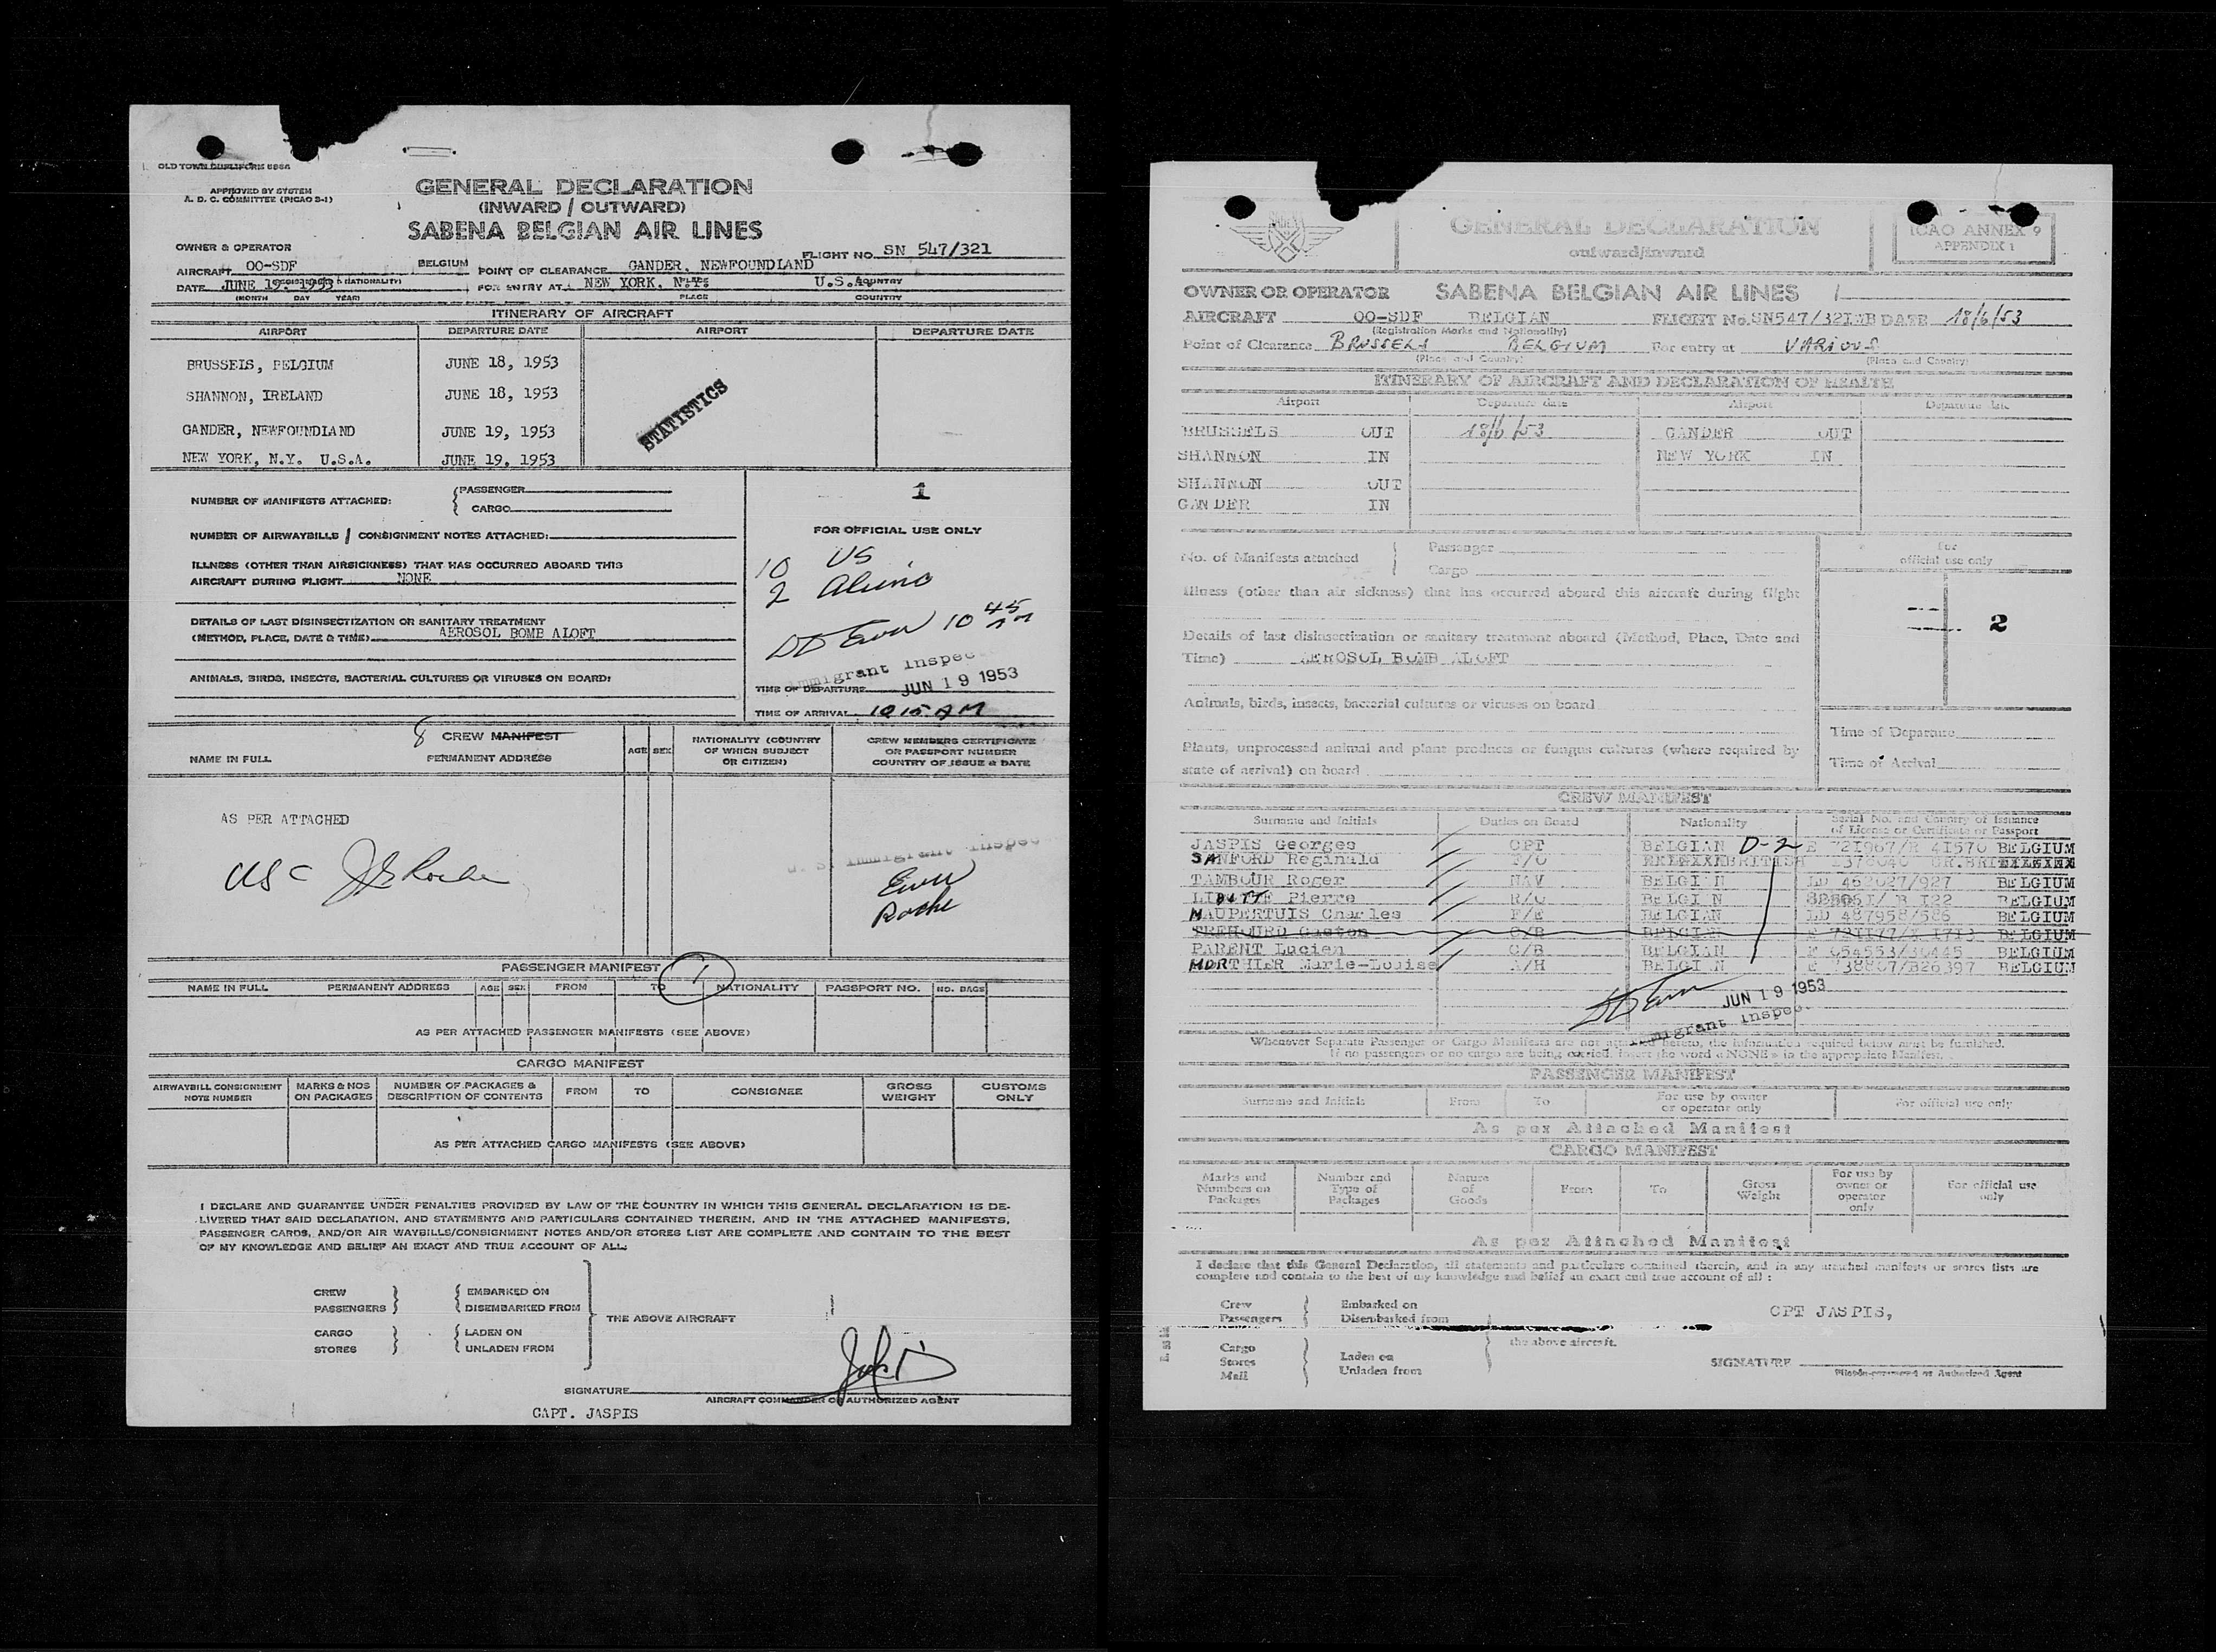 OLD TOWN DUPLIFORM 888A
APPROVED BY SYSTEM
A. D. C. COMMITTEE (PICAO S-1)
GENERAL DECLARATION
(INWARD / OUTWARD)
SABENA BELGIAN AIR LINES
OWNER & OPERATOR
FLIGHT NO. SN 547/321
AIRCRAFT OO-SDF BELGIUM POINT OF CLEARANCE GANDER, NEWFOUNDLAND
DATE JUNE 19, 1953 FOR ENTRY AT NEW YORK, N.Y. U.S.A.
(MONTH DAY YEAR) PLACE COUNTRY
ITINERARY OF AIRCRAFT
AIRPORT DEPARTURE DATE AIRPORT DEPARTURE DATE
BRUSSELS, BELGIUM JUNE 18, 1953
SHANNON, IRELAND JUNE 18, 1953
GANDER, NEWFOUNDLAND JUNE 19, 1953
NEW YORK, N.Y. U.S.A. JUNE 19, 1953
STATISTICS
NUMBER OF MANIFESTS ATTACHED: PASSENGER
CARGO
1
FOR OFFICIAL USE ONLY
NUMBER OF AIRWAYBILLS / CONSIGNMENT NOTES ATTACHED:
10 US
2 Aliens
ILLNESS (OTHER THAN AIRSICKNESS) THAT HAS OCCURRED ABOARD THIS
AIRCRAFT DURING FLIGHT NONE
DETAILS OF LAST DISINSECTIZATION OR SANITARY TREATMENT
(METHOD, PLACE, DATE & TIME) AEROSOL BOMB ALOFT
10 45
Immigrant Inspec
ANIMALS, BIRDS, INSECTS, BACTERIAL CULTURES OR VIRUSES ON BOARD:
TIME OF DEPARTURE JUN 19 1953
TIME OF ARRIVAL 10 15 AM
8 CREW MANIFEST
NAME IN FULL PERMANENT ADDRESS AGE SEX NATIONALITY (COUNTRY OF WHICH SUBJECT OR CITIZEN) CREW MEMBERS CERTIFICATE OR PASSPORT NUMBER COUNTRY OF ISSUE & DATE
AS PER ATTACHED
U. S. Immigrant Inspec
USC
Roche
PASSENGER MANIFEST 1
NAME IN FULL PERMANENT ADDRESS AGE SEX FROM TO NATIONALITY PASSPORT NO. NO. BAGS
AS PER ATTACHED PASSENGER MANIFESTS (SEE ABOVE)
CARGO MANIFEST
AIRWAYBILL CONSIGNMENT NOTE NUMBER MARKS & NOS ON PACKAGES NUMBER OF PACKAGES & DESCRIPTION OF CONTENTS FROM TO CONSIGNEE GROSS WEIGHT CUSTOMS ONLY
AS PER ATTACHED CARGO MANIFESTS (SEE ABOVE)
I DECLARE AND GUARANTEE UNDER PENALTIES PROVIDED BY LAW OF THE COUNTRY IN WHICH THIS GENERAL DECLARATION IS DE-
LIVERED THAT SAID DECLARATION, AND STATEMENTS AND PARTICULARS CONTAINED THEREIN, AND IN THE ATTACHED MANIFESTS,
PASSENGER CARDS, AND/OR AIR WAYBILLS/CONSIGNMENT NOTES AND/OR STORES LIST ARE COMPLETE AND CONTAIN TO THE BEST
OF MY KNOWLEDGE AND BELIEF AN EXACT AND TRUE ACCOUNT OF ALL:
CREW EMBARKED ON
PASSENGERS DISEMBARKED FROM
THE ABOVE AIRCRAFT
CARGO LADEN ON
STORES UNLADEN FROM
SIGNATURE
AIRCRAFT COMMANDER OR AUTHORIZED AGENT
CAPT. JASPIS
SABENA
GENERAL DECLARATION
outward/inward
ICAO ANNEX 9
APPENDIX 1
OWNER OR OPERATOR SABENA BELGIAN AIR LINES /
AIRCRAFT OO-SDF BELGIAN FLIGHT No. SN547/321WB DATE 18/6/53
(Registration Marks and Nationality)
Point of Clearance BRUSSELS BELGIUM For entry at VARIOUS
(Place and Country) (Place and Country)
ITINERARY OF AIRCRAFT AND DECLARATION OF HEALTH
Airport Departure date Airport Departure date
BRUSSELS OUT 18/6/53 GANDER OUT
SHANNON IN NEW YORK IN
SHANNON OUT
GANDER IN
No. of Manifests attached Passenger
Cargo
For
official use only
Illness (other than air sickness) that has occurred aboard this aircraft during flight
2
Details of last disinsectization or sanitary treatment aboard (Method, Place, Date and
Time) AEROSOL BOMB ALOFT
Animals, birds, insects, bacterial cultures or viruses on board
Time of Departure
Plants, unprocessed animal and plant products or fungus cultures (where required by
state of arrival) on board
Time of Arrival
CREW MANIFEST
Surname and Initials Duties on Board Nationality Serial No. and Country of Issuance of License or Certificate or Passport
JASPIS Georges CPT BELGIAN D-2 E 721967/R 41570 BELGIUM
SANFORD Reginald F/O BRITISH E376040 GR.BRI
TAMBOUR Roger NAV BELGI N LD 462027/927 BELGIUM
Pierre R/O BELGI N BELGIUM
MAUPERTUIS Charles F/E BELGIAN LD 487958/586 BELGIUM
TREHOURD Gaston C/B BELGIAN E 721177/ 1713 BELGIUM
PARENT Lucien C/B BELGIAN E 054553/30445 BELGIUM
MORTHIER Marie-Louise A/H BELGI N E 738807/B26397 BELGIUM
JUN 19 1953
Immigrant Inspec.
Whenever Separate Passenger or Cargo Manifests are not attached hereto, the information required below must be furnished.
If no passengers or no cargo are being carried, insert the word « NONE » in the appropriate Manifest.
PASSENGER MANIFEST
Surname and Initials From To For use by owner or operator only For official use only
As per Attached Manifest
CARGO MANIFEST
Marks and Numbers on Packages Number and Type of Packages Nature of Goods From To Gross Weight For use by owner or operator only For official use only
As per Attached Manifest
I declare that this General Declaration, all statements and particulars contained therein, and in any attached manifests or stores lists are
complete and contain to the best of my knowledge and belief an exact and true account of all :
Crew Embarked on
Passengers Disembarked from
CPT JASPIS,
the above aircraft.
Cargo Laden on
Stores Unladen from
Mail
SIGNATURE
Pilot-in-command or Authorized Agent